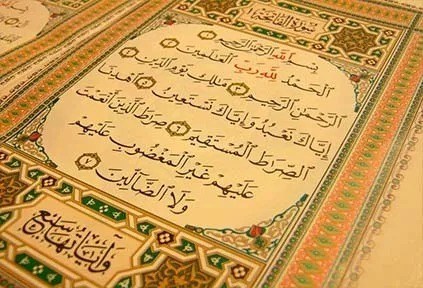 سُورَةُ الفَاتِحَةِ
بِسْمِ اللَّهِ الرَّحْمَٰنِ الرَّحِيمِ ١
الْحَمْدُ لِلَّهِ رَبِّ الْعَالَمِينَ ٢
الرَّحْمَٰنِ الرَّحِيمِ ٣ مَلِكِ يَوْمِ الدِّينِ ٤
إِيَّاكَ نَعْبُدُ وَإِيَّاكَ نَسْتَعِينُ ٥ اهْدِنَا
الصِّرَاطَ الْمُسْتَقِيمَ ٦ صِرَاطَ الَّذِينَ أَنْعَمْتَ
عَلَيْهِمْ غَيْرِ الْمَغْضُوبِ عَلَيْهِمْ
وَلَا الضَّالِّينَ ٧
وَآيَاتُهَا سَبْعٌ